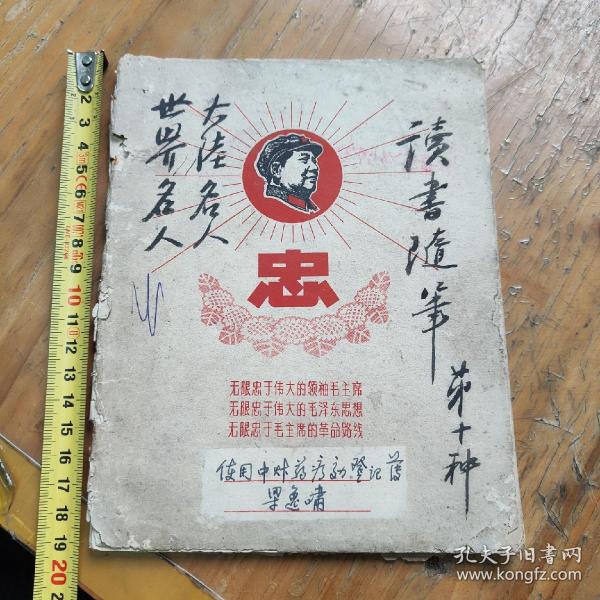 讀書隨筆
第十种
大陸名人
世界名人
忠
无限忠于伟大的领袖毛主席
无限忠于伟大的毛泽东思想
无限忠于毛主席的革命路线
使用中草药疗效登记簿
孔夫子旧书网
www.kongfz.com
1 2 3 4 5 6 7 8 9 10 11 12 13 14 15 16 17 18 19 20